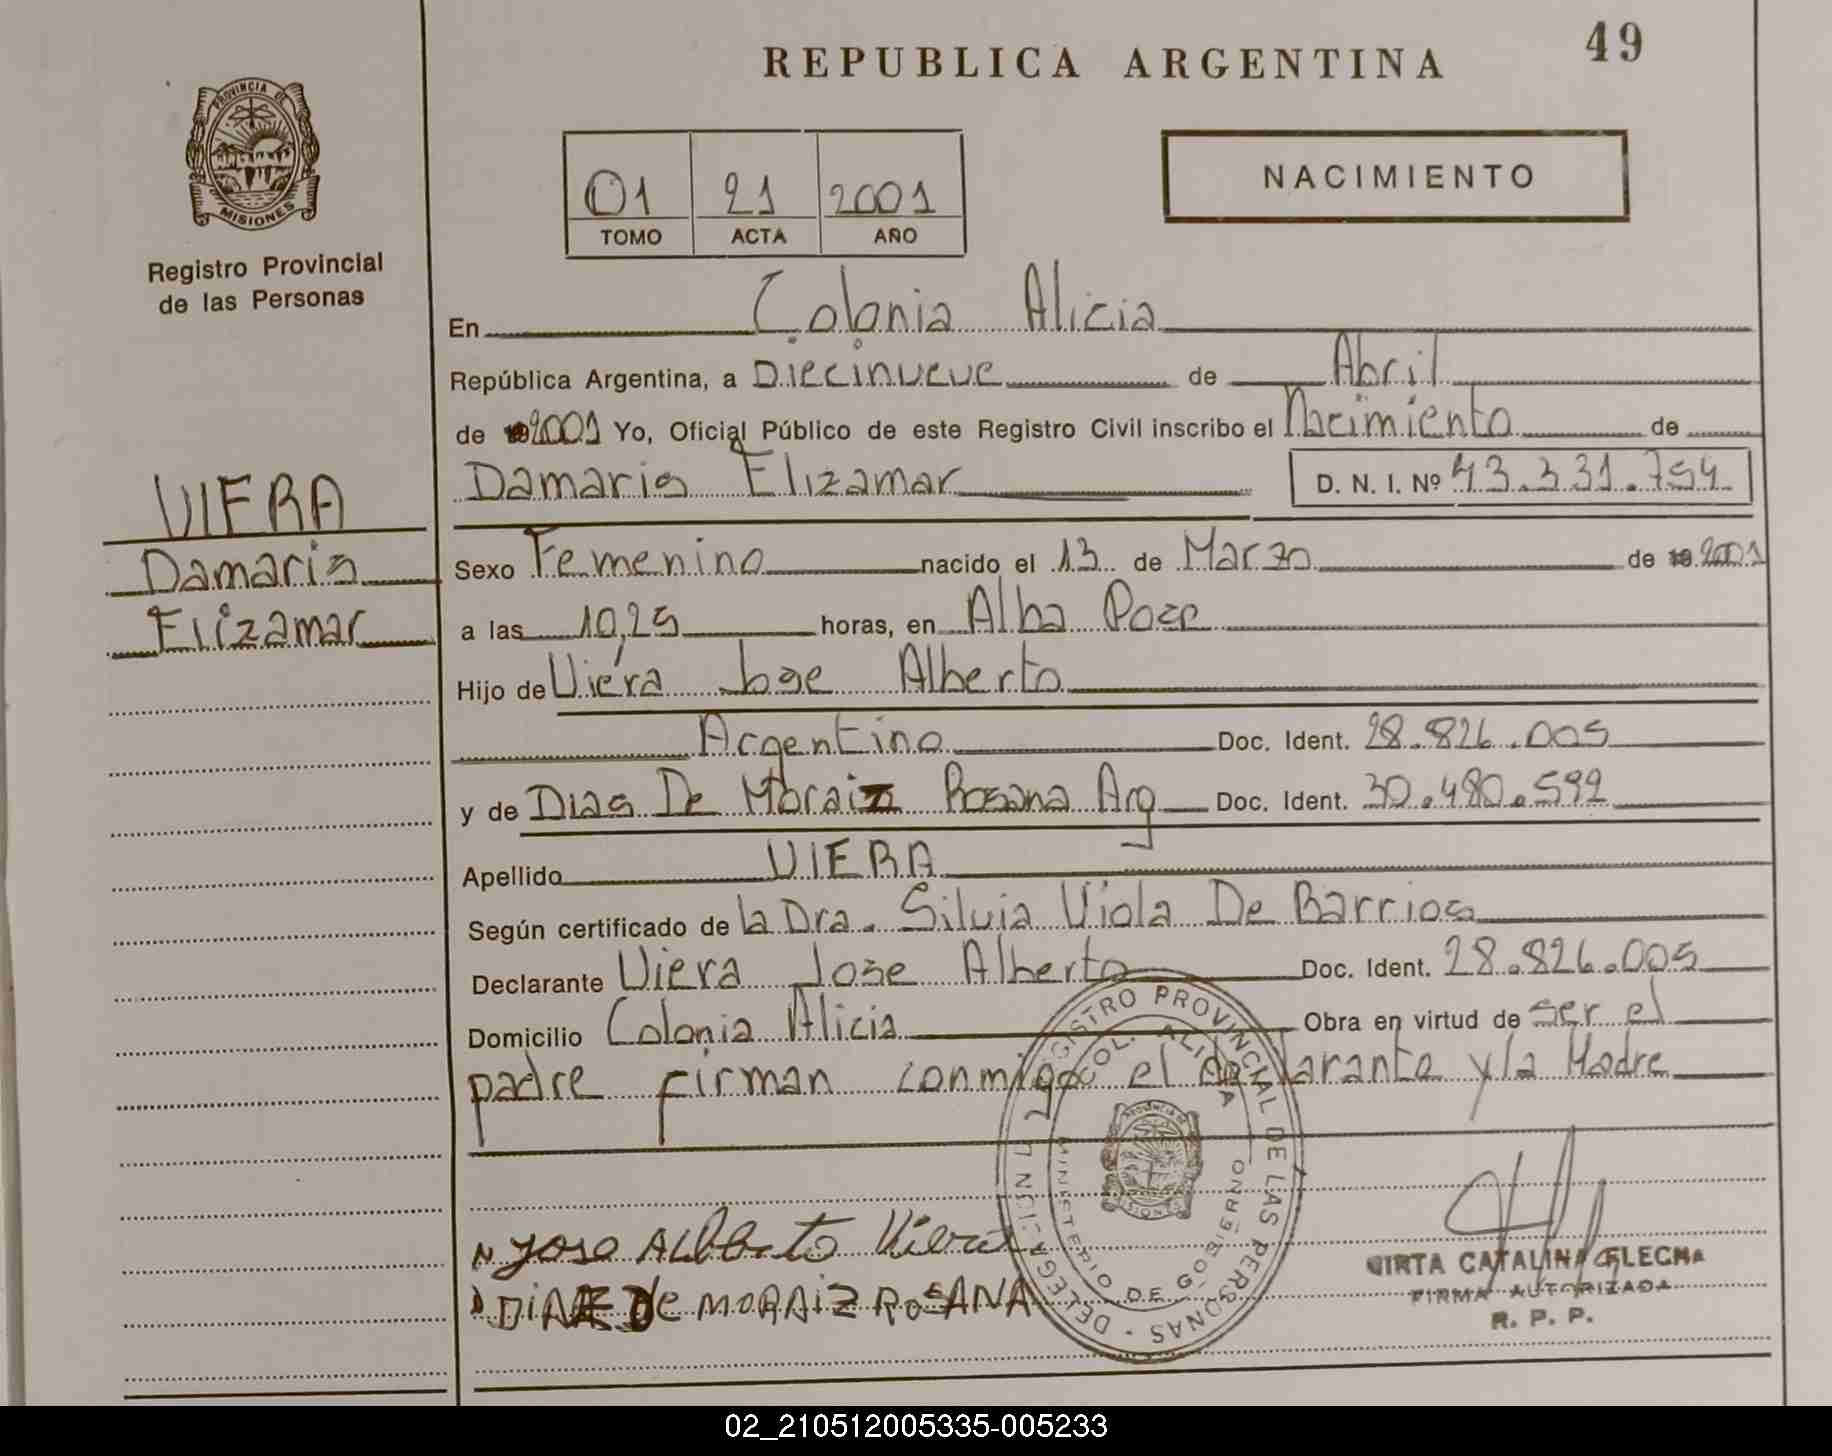 49
REPUBLICA ARGENTINA
PROVINCIA DE
MISIONES
Registro Provincial
de las Personas
01 21 2001
TOMO ACTA AÑO
NACIMIENTO
En Colonia Alicia
República Argentina, a Diecinueve de Abril
de 2001 Yo, Oficial Público de este Registro Civil inscribo el Nacimiento de
Damaris Elizamar D. N. I. Nº 43.331.754
VIERA
Damaris
Elizamar
Sexo Femenino nacido el 13 de Marzo de 2001
a las 10,25 horas, en Alba Pose
Hijo de Viera Jose Alberto
Argentino Doc. Ident. 28.826.005
y de Dias De Moraiz Rosana Arg Doc. Ident. 30.480.592
Apellido VIERA
Según certificado de la Dra. Silvia Viola De Barrios
Declarante Viera Jose Alberto Doc. Ident. 28.826.005
Domicilio Colonia Alicia Obra en virtud de ser el
padre firman conmigo el declarante y la Madre
REGISTRO PROVINCIAL DE LAS PERSONAS - DELEGACION
COL. ALICIA
MINISTERIO DE GOBIERNO
Jose Alberto Viera
DIAZ De MORAIZ ROSANA
CATALINA FLECHA
FIRMA AUTORIZADA
R. P. P.
02_210512005335-005233